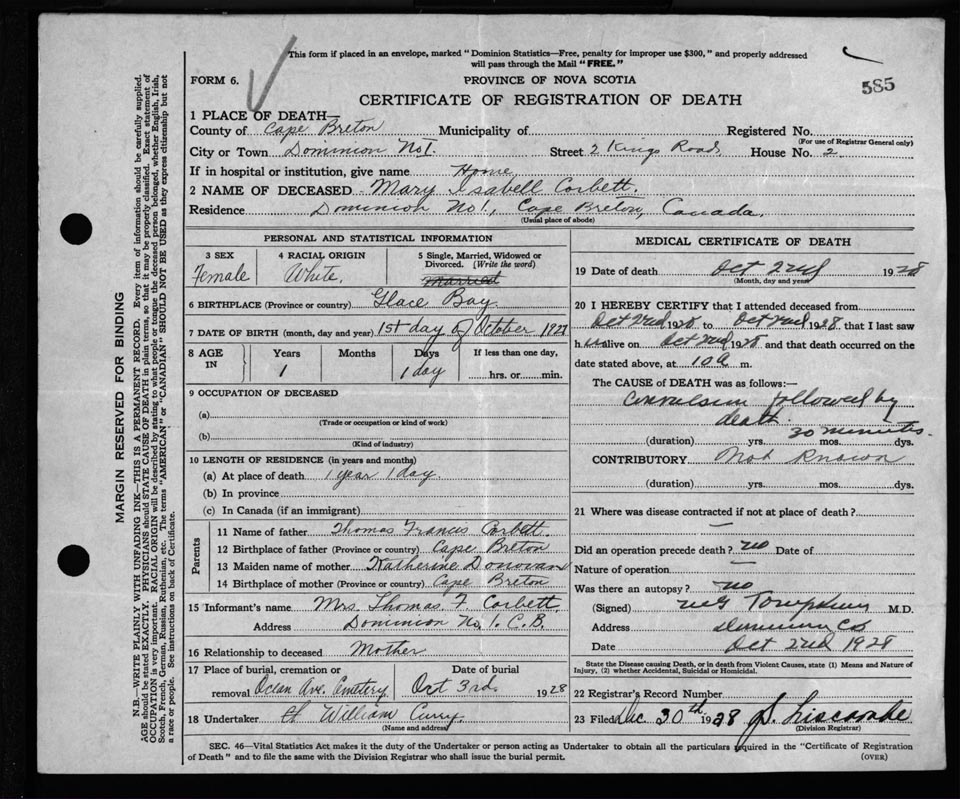 This form if placed in an envelope, marked "Dominion Statistics—Free, penalty for improper use $300," and properly addressed
will pass through the Mail "FREE."
FORM 6.
PROVINCE OF NOVA SCOTIA
585
CERTIFICATE OF REGISTRATION OF DEATH
1 PLACE OF DEATH—
County of Cape Breton Municipality of Registered No.
(For use of Registrar General only)
City or Town Dominion No 1. Street 2 Kings Road House No. 2
If in hospital or institution, give name Home
2 NAME OF DECEASED Mary Isabell Corbett.
Residence Dominion No 1, Cape Breton, Canada.
(Usual place of abode)
PERSONAL AND STATISTICAL INFORMATION
3 SEX 4 RACIAL ORIGIN 5 Single, Married, Widowed or
Divorced. (Write the word)
Female White. Married
6 BIRTHPLACE (Province or country) Glace Bay
7 DATE OF BIRTH (month, day and year) 1st day of October 1927
8 AGE IN Years Months Days If less than one day,
1 1 day hrs. or min.
9 OCCUPATION OF DECEASED
(a)
(Trade or occupation or kind of work)
(b)
(Kind of industry)
10 LENGTH OF RESIDENCE (in years and months)
(a) At place of death 1 year 1 day.
(b) In province
(c) In Canada (if an immigrant)
Parents
11 Name of father Thomas Francis Corbett.
12 Birthplace of father (Province or country) Cape Breton
13 Maiden name of mother Katherine Donovan
14 Birthplace of mother (Province or country) Cape Breton
15 Informant's name Mrs. Thomas F. Corbett
Address Dominion No. 1. C.B.
16 Relationship to deceased Mother
17 Place of burial, cremation or Date of burial
removal Ocean Ave. Cemetery Oct 3rd. 1928
18 Undertaker William Curry
(Name and address)
MEDICAL CERTIFICATE OF DEATH
19 Date of death Oct 2nd 1928
(Month, day and year)
20 I HEREBY CERTIFY that I attended deceased from
Oct 2nd 1928 to Oct 2nd 1928, that I last saw
h er alive on Oct 2nd 1928 and that death occurred on the
date stated above, at 10 a m.
The CAUSE OF DEATH was as follows:—
Convulsion followed by
death. 30 minutes.
(duration) yrs. mos. dys.
CONTRIBUTORY Not Known
(duration) yrs. mos. dys.
21 Where was disease contracted if not at place of death?
—
Did an operation precede death? no Date of
Nature of operation —
Was there an autopsy? no
(Signed) Tompkins M.D.
Address Dominion C.B.
Date Oct 2nd 1928
State the Disease causing Death, or in death from Violent Causes, state (1) Means and Nature of
Injury, (2) whether Accidental, Suicidal or Homicidal.
22 Registrar's Record Number
23 Filed Dec. 30th 1928 J. Liscombe
(Division Registrar)
SEC. 46—Vital Statistics Act makes it the duty of the Undertaker or person acting as Undertaker to obtain all the particulars required in the "Certificate of Registration
of Death" and to file the same with the Division Registrar who shall issue the burial permit. (OVER)
MARGIN RESERVED FOR BINDING
N.B.—WRITE PLAINLY WITH UNFADING INK—THIS IS A PERMANENT RECORD. Every item of information should be carefully supplied.
AGE should be stated EXACTLY. PHYSICIANS should STATE CAUSE OF DEATH in plain terms, so that it may be properly classified. Exact statement of
OCCUPATION is very important. RACIAL ORIGIN will be described by stating to what people or tongue the deceased person belonged, whether English, Irish,
Scotch, French, German, Russian, Ruthenian, etc. The terms "AMERICAN" or "CANADIAN" SHOULD NOT BE USED as they express citizenship but not
a race or people. See instructions on back of Certificate.